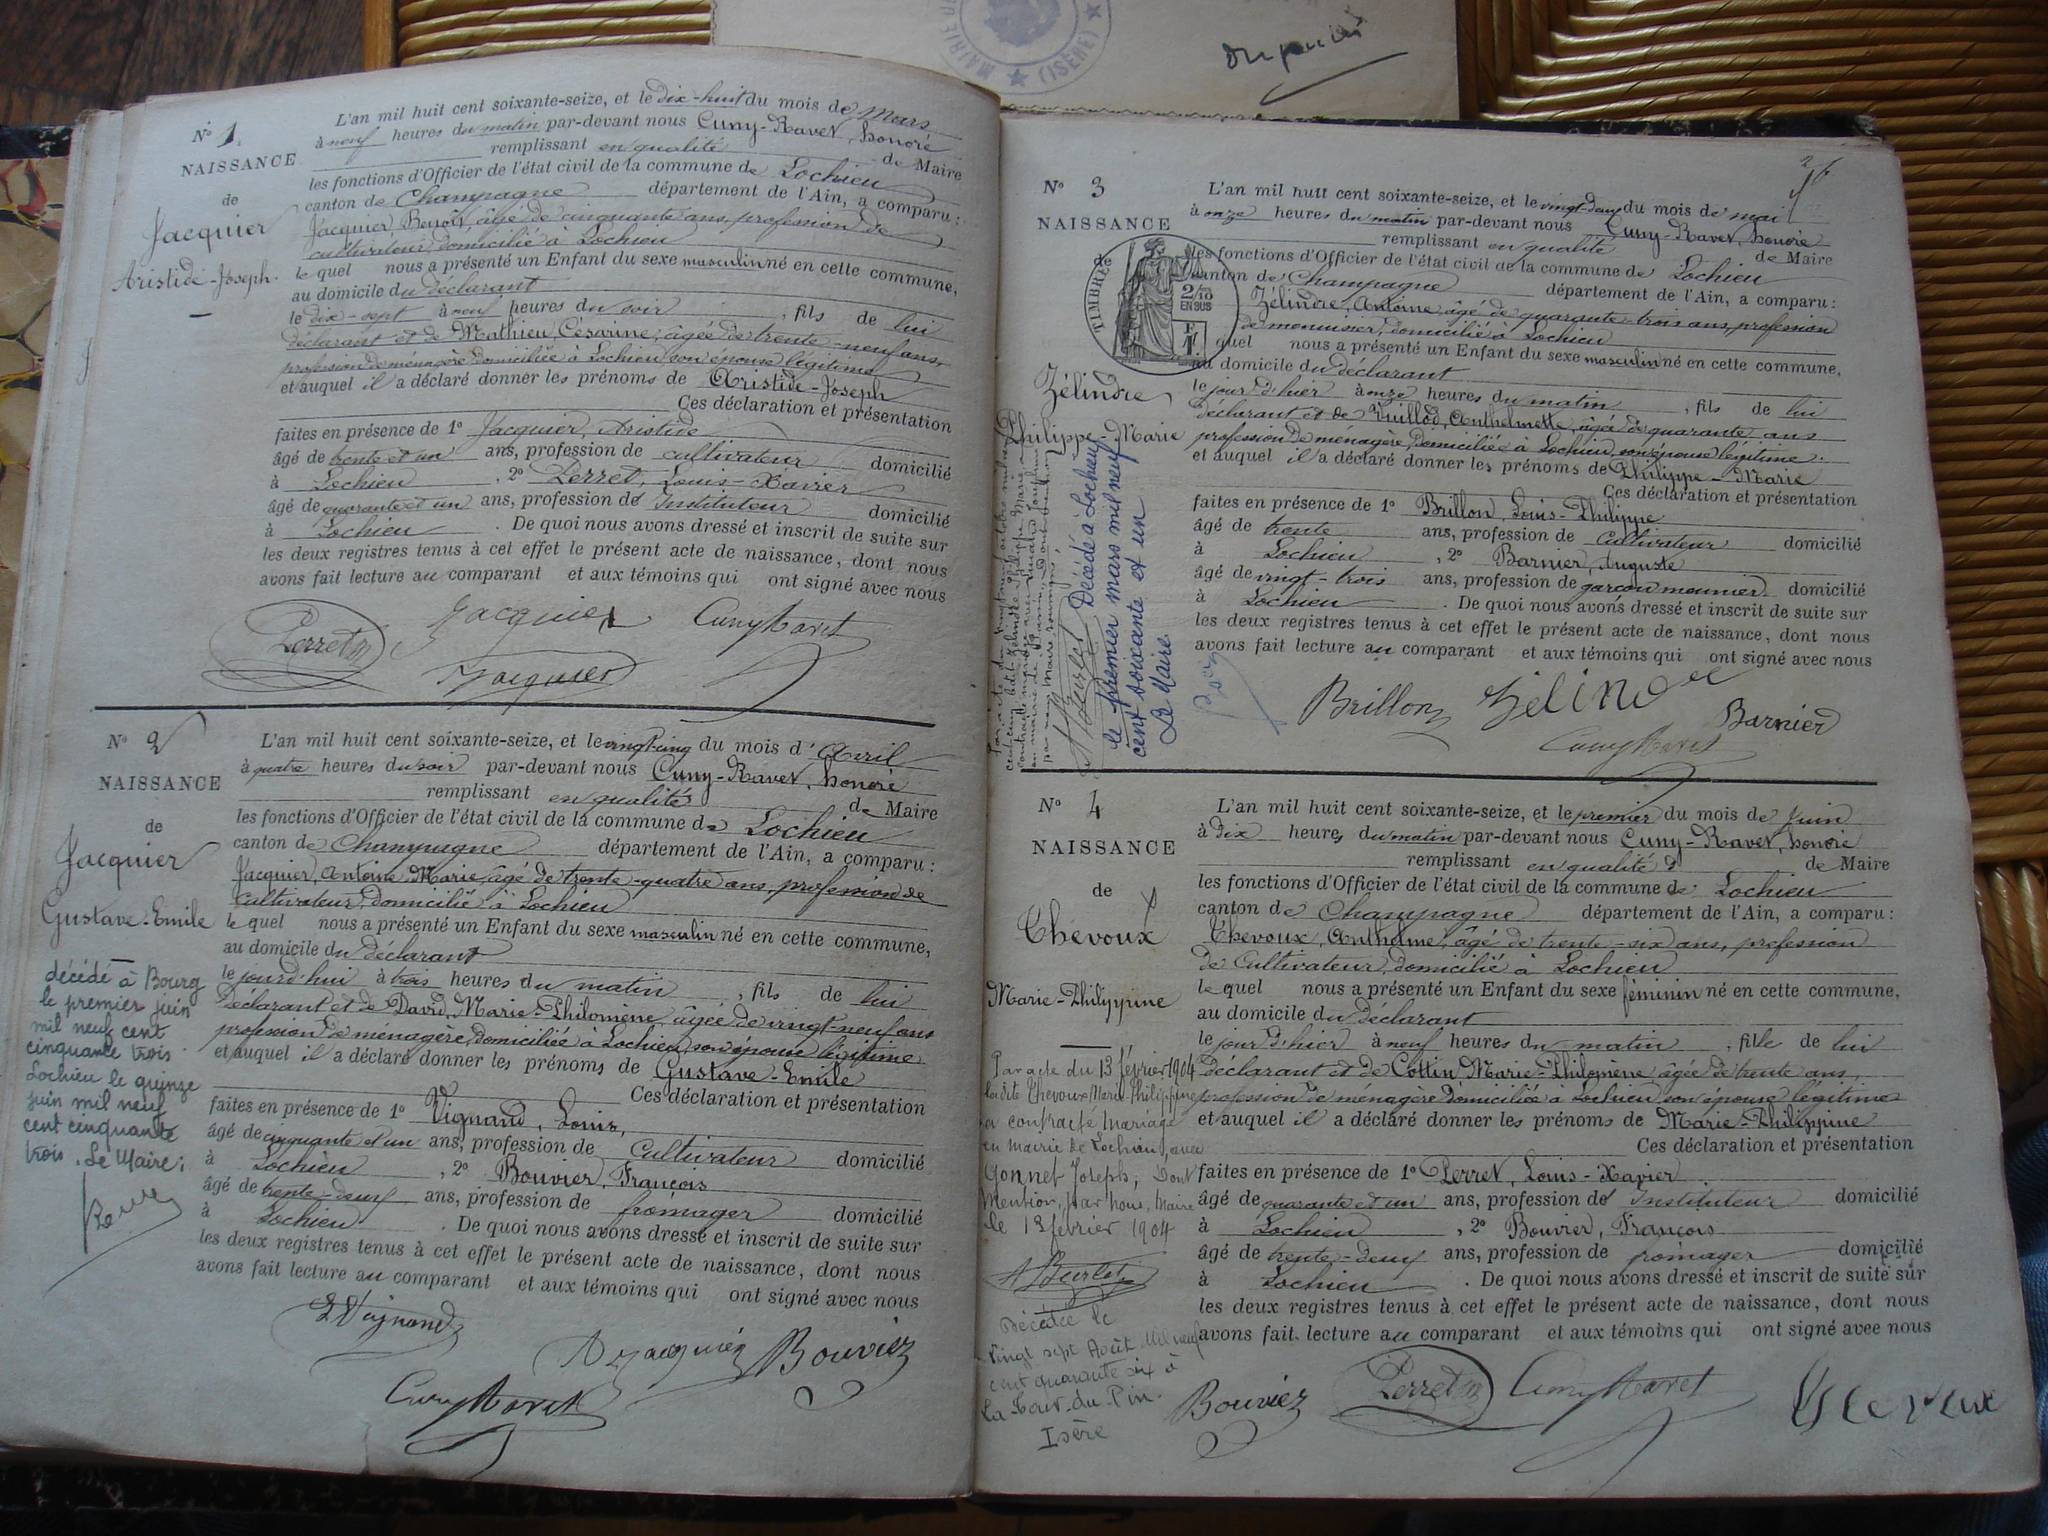 MAIRIE DE
(ISÈRE)
N° 1.
NAISSANCE
de
Jacquier
Aristide-Joseph.
L'an mil huit cent soixante-seize, et le dix-huit du mois de Mars
à neuf heures du matin par-devant nous Cuny-Ravet, honoré
remplissant en qualité de Maire
les fonctions d'Officier de l'état civil de la commune de Lochieu
canton de Champagne département de l'Ain, a comparu :
Jacquier, Benoît, âgé de cinquante ans, profession de
cultivateur, domicilié à Lochieu
le quel nous a présenté un Enfant du sexe masculin né en cette commune,
au domicile du déclarant
le dix-sept à neuf heures du soir, fils de lui
déclarant et de Mathieu Césarine, âgée de trente-neuf ans,
profession de ménagère domiciliée à Lochieu, son épouse légitime
et auquel il a déclaré donner les prénoms de Aristide-Joseph
Ces déclaration et présentation
faites en présence de 1° Jacquier, Aristide
âgé de trente et un ans, profession de cultivateur domicilié
à Lochieu, 2° Perret, Louis-Xavier
âgé de quarante et un ans, profession de Instituteur domicilié
à Lochieu. De quoi nous avons dressé et inscrit de suite sur
les deux registres tenus à cet effet le présent acte de naissance, dont nous
avons fait lecture au comparant et aux témoins qui ont signé avec nous
Jacquier Cuny Ravet
Perret
Jacquier
N° 2
NAISSANCE
de
Jacquier
Gustave-Emile
décédé à Bourg
le premier juin
mil neuf cent
cinquante trois.
Lochieu le quinze
juin mil neuf
cent cinquante
trois. Le Maire,
L'an mil huit cent soixante-seize, et le vingt-cinq du mois d'Avril
à quatre heures du soir par-devant nous Cuny-Ravet, honoré
remplissant en qualité de Maire
les fonctions d'Officier de l'état civil de la commune de Lochieu
canton de Champagne département de l'Ain, a comparu :
Jacquier, Antoine Marie, âgé de trente-quatre ans, profession de
Cultivateur, domicilié à Lochieu
le quel nous a présenté un Enfant du sexe masculin né en cette commune,
au domicile du déclarant
le jourd'hui à trois heures du matin, fils de lui
déclarant et de David, Marie-Philomène, âgée de vingt-neuf ans
profession de ménagère, domiciliée à Lochieu, son épouse légitime
et auquel il a déclaré donner les prénoms de Gustave-Emile
Ces déclaration et présentation
faites en présence de 1° Vignand, Louis,
âgé de cinquante et un ans, profession de Cultivateur domicilié
à Lochieu, 2° Bouvier, François
âgé de trente-deux ans, profession de fromager domicilié
à Lochieu. De quoi nous avons dressé et inscrit de suite sur
les deux registres tenus à cet effet le présent acte de naissance, dont nous
avons fait lecture au comparant et aux témoins qui ont signé avec nous
Vignand
Jacquier Bouvier
Cuny Ravet
N° 3
NAISSANCE
de
TIMBRES
2/10
EN SUS
Zélindre,
Philippe-Marie
Décédé à Lochieu
le premier mars mil neuf
cent soixante et un
Le Maire
L'an mil huit cent soixante-seize, et le vingt-deux du mois de mai
à onze heures du matin par-devant nous Cuny-Ravet, honoré
remplissant en qualité de Maire
les fonctions d'Officier de l'état civil de la commune de Lochieu
canton de Champagne département de l'Ain, a comparu :
Zélindre, Antoine, âgé de quarante-trois ans, profession
de meunier, domicilié à Lochieu
quel nous a présenté un Enfant du sexe masculin né en cette commune,
au domicile du déclarant
le jour d'hier à onze heures du matin, fils de lui
déclarant et de Vuillod, Anthelmette, âgée de quarante ans
profession de ménagère, domiciliée à Lochieu, son épouse légitime.
et auquel il a déclaré donner les prénoms de Philippe-Marie
Ces déclaration et présentation
faites en présence de 1° Brillon, Louis-Philippe
âgé de trente ans, profession de cultivateur domicilié
à Lochieu, 2° Barnier, Auguste
âgé de vingt-trois ans, profession de garçon meunier domicilié
à Lochieu. De quoi nous avons dressé et inscrit de suite sur
les deux registres tenus à cet effet le présent acte de naissance, dont nous
avons fait lecture au comparant et aux témoins qui ont signé avec nous
Brillon Zélindre Barnier
Cuny Ravet
N° 4
NAISSANCE
de
Thevoux
Marie-Philippine
Par acte du 13 février 1904
la dite Thevoux Marie-Philippine
a contracté mariage
en mairie de Lochieu, avec
Gonnet Joseph; Dont
Mention, par nous, Maire
le 13 février 1904
Décédée le
vingt sept Août Mil neuf
cent quarante six à
La Tour-du-Pin.
Isère
L'an mil huit cent soixante-seize, et le premier du mois de Juin
à dix heures du matin par-devant nous Cuny-Ravet, honoré
remplissant en qualité de Maire
les fonctions d'Officier de l'état civil de la commune de Lochieu
canton de Champagne département de l'Ain, a comparu :
Thevoux, Anthelme, âgé de trente-six ans, profession
de Cultivateur, domicilié à Lochieu
le quel nous a présenté un Enfant du sexe féminin né en cette commune,
au domicile du déclarant
le jour d'hier à neuf heures du matin, fille de lui
déclarant et de Cottin, Marie-Philomène âgée de trente ans,
profession de ménagère Domiciliée à Lochieu, son épouse légitime
et auquel il a déclaré donner les prénoms de Marie-Philippine
Ces déclaration et présentation
faites en présence de 1° Perret, Louis-Xavier
âgé de quarante et un ans, profession de Instituteur domicilié
à Lochieu, 2° Bouvier, François
âgé de trente-deux ans, profession de fromager domicilié
à Lochieu. De quoi nous avons dressé et inscrit de suite sur
les deux registres tenus à cet effet le présent acte de naissance, dont nous
avons fait lecture au comparant et aux témoins qui ont signé avec nous
Bouvier Perret Cuny Ravet Thevoux